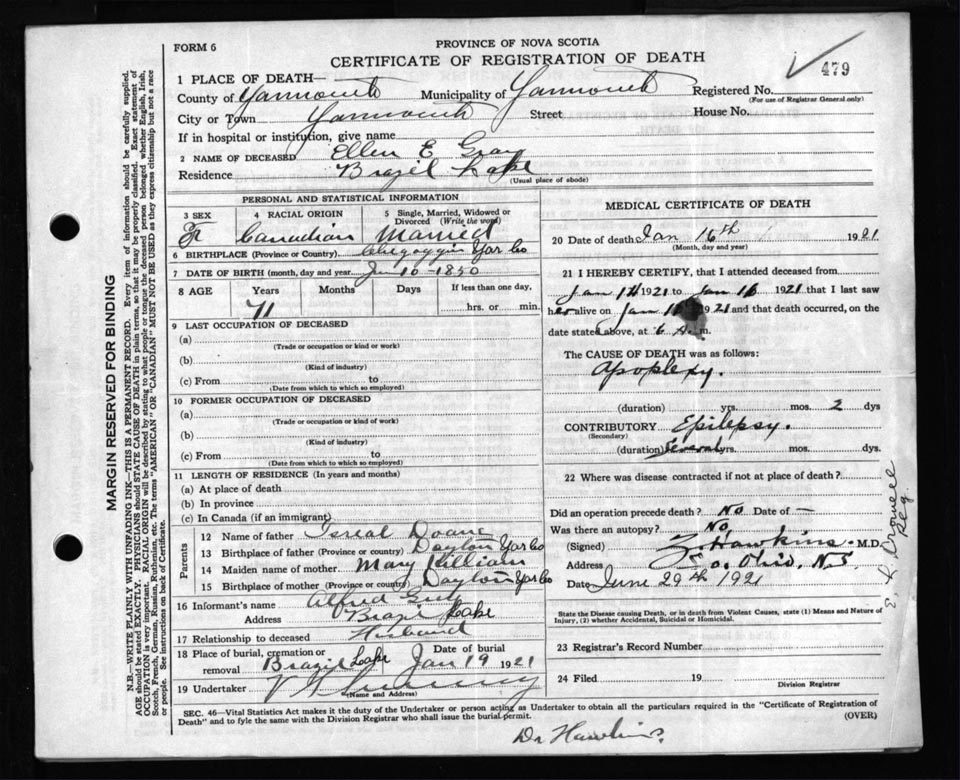 FORM 6
PROVINCE OF NOVA SCOTIA
CERTIFICATE OF REGISTRATION OF DEATH
479
1 PLACE OF DEATH—
County of Yarmouth Municipality of Yarmouth Registered No.
(For use of Registrar General only)
City or Town Yarmouth Street House No.
If in hospital or institution, give name
2 NAME OF DECEASED Ellen E Gray
Residence Brazil Lake
(Usual place of abode)
PERSONAL AND STATISTICAL INFORMATION
3 SEX 4 RACIAL ORIGIN 5 Single, Married, Widowed or Divorced (Write the word)
F Canadian Married
6 BIRTHPLACE (Province or Country) Chegoggin Yar Co
7 DATE OF BIRTH (month, day and year) 10-1850
8 AGE Years Months Days If less than one day,
71 hrs. or min.
9 LAST OCCUPATION OF DECEASED
(a)
(Trade or occupation or kind or work)
(b)
(Kind of industry)
(c) From to
(Date from which to which so employed)
10 FORMER OCCUPATION OF DECEASED
(a)
(Trade or occupation or kind of work)
(b)
(Kind of industry)
(c) From to
(Date from which to which so employed)
11 LENGTH OF RESIDENCE (In years and months)
(a) At place of death
(b) In province
(c) In Canada (if an immigrant)
Parents
12 Name of father Isreal Doane
13 Birthplace of father (Province or country) Dayton Yar Co
14 Maiden name of mother Mary Killiam
15 Birthplace of mother (Province or country) Dayton Yar Co
16 Informant's name Alfred
Address Brazil Lake
17 Relationship to deceased Husband
18 Place of burial, cremation or removal Brazil Lake Date of burial Jan 19 1921
19 Undertaker
(Name and Address)
MEDICAL CERTIFICATE OF DEATH
20 Date of death Jan 16th 1921
(Month, day and year)
21 I HEREBY CERTIFY, that I attended deceased from
Jan 14 1921 to Jan 16 1921 that I last saw
her alive on Jan 1921 and that death occurred, on the
date stated above, at 6 A. m.
The CAUSE OF DEATH was as follows:
Apoplexy.
(duration) yrs. mos. 2 dys
CONTRIBUTORY Epilepsy.
(Secondary)
(duration) Several yrs. mos. dys.
22 Where was disease contracted if not at place of death?
Did an operation precede death? No Date of —
Was there an autopsy? No
(Signed) Z Hawkins. M.D.
Address So. Ohio, N.S.
Date June 29th 1921
State the Disease causing Death, or in death from Violent Causes, state (1) Means and Nature of Injury, (2) whether Accidental, Suicidal or Homicidal.
23 Registrar's Record Number
24 Filed 19
Division Registrar
SEC. 46—Vital Statistics Act makes it the duty of the Undertaker or person acting as Undertaker to obtain all the particulars required in the "Certificate of Registration of
Death" and to fyle the same with the Division Registrar who shall issue the burial permit.
(OVER)
Dr Hawkins.
MARGIN RESERVED FOR BINDING
N.B.—WRITE PLAINLY WITH UNFADING INK—THIS IS A PERMANENT RECORD. Every item of information should be carefully supplied.
AGE should be stated EXACTLY. PHYSICIANS should STATE CAUSE OF DEATH in plain terms, so that it may be properly classified. Exact statement of
OCCUPATION is very important. RACIAL ORIGIN will be described by stating to what people or tongue the deceased person belonged whether English, Irish,
Scotch, French, German, Russian, Ruthenian, etc. The terms "AMERICAN" OR "CANADIAN" MUST NOT BE USED as they express citizenship but not a race
or people. See instructions on back of Certificate.
Reg.